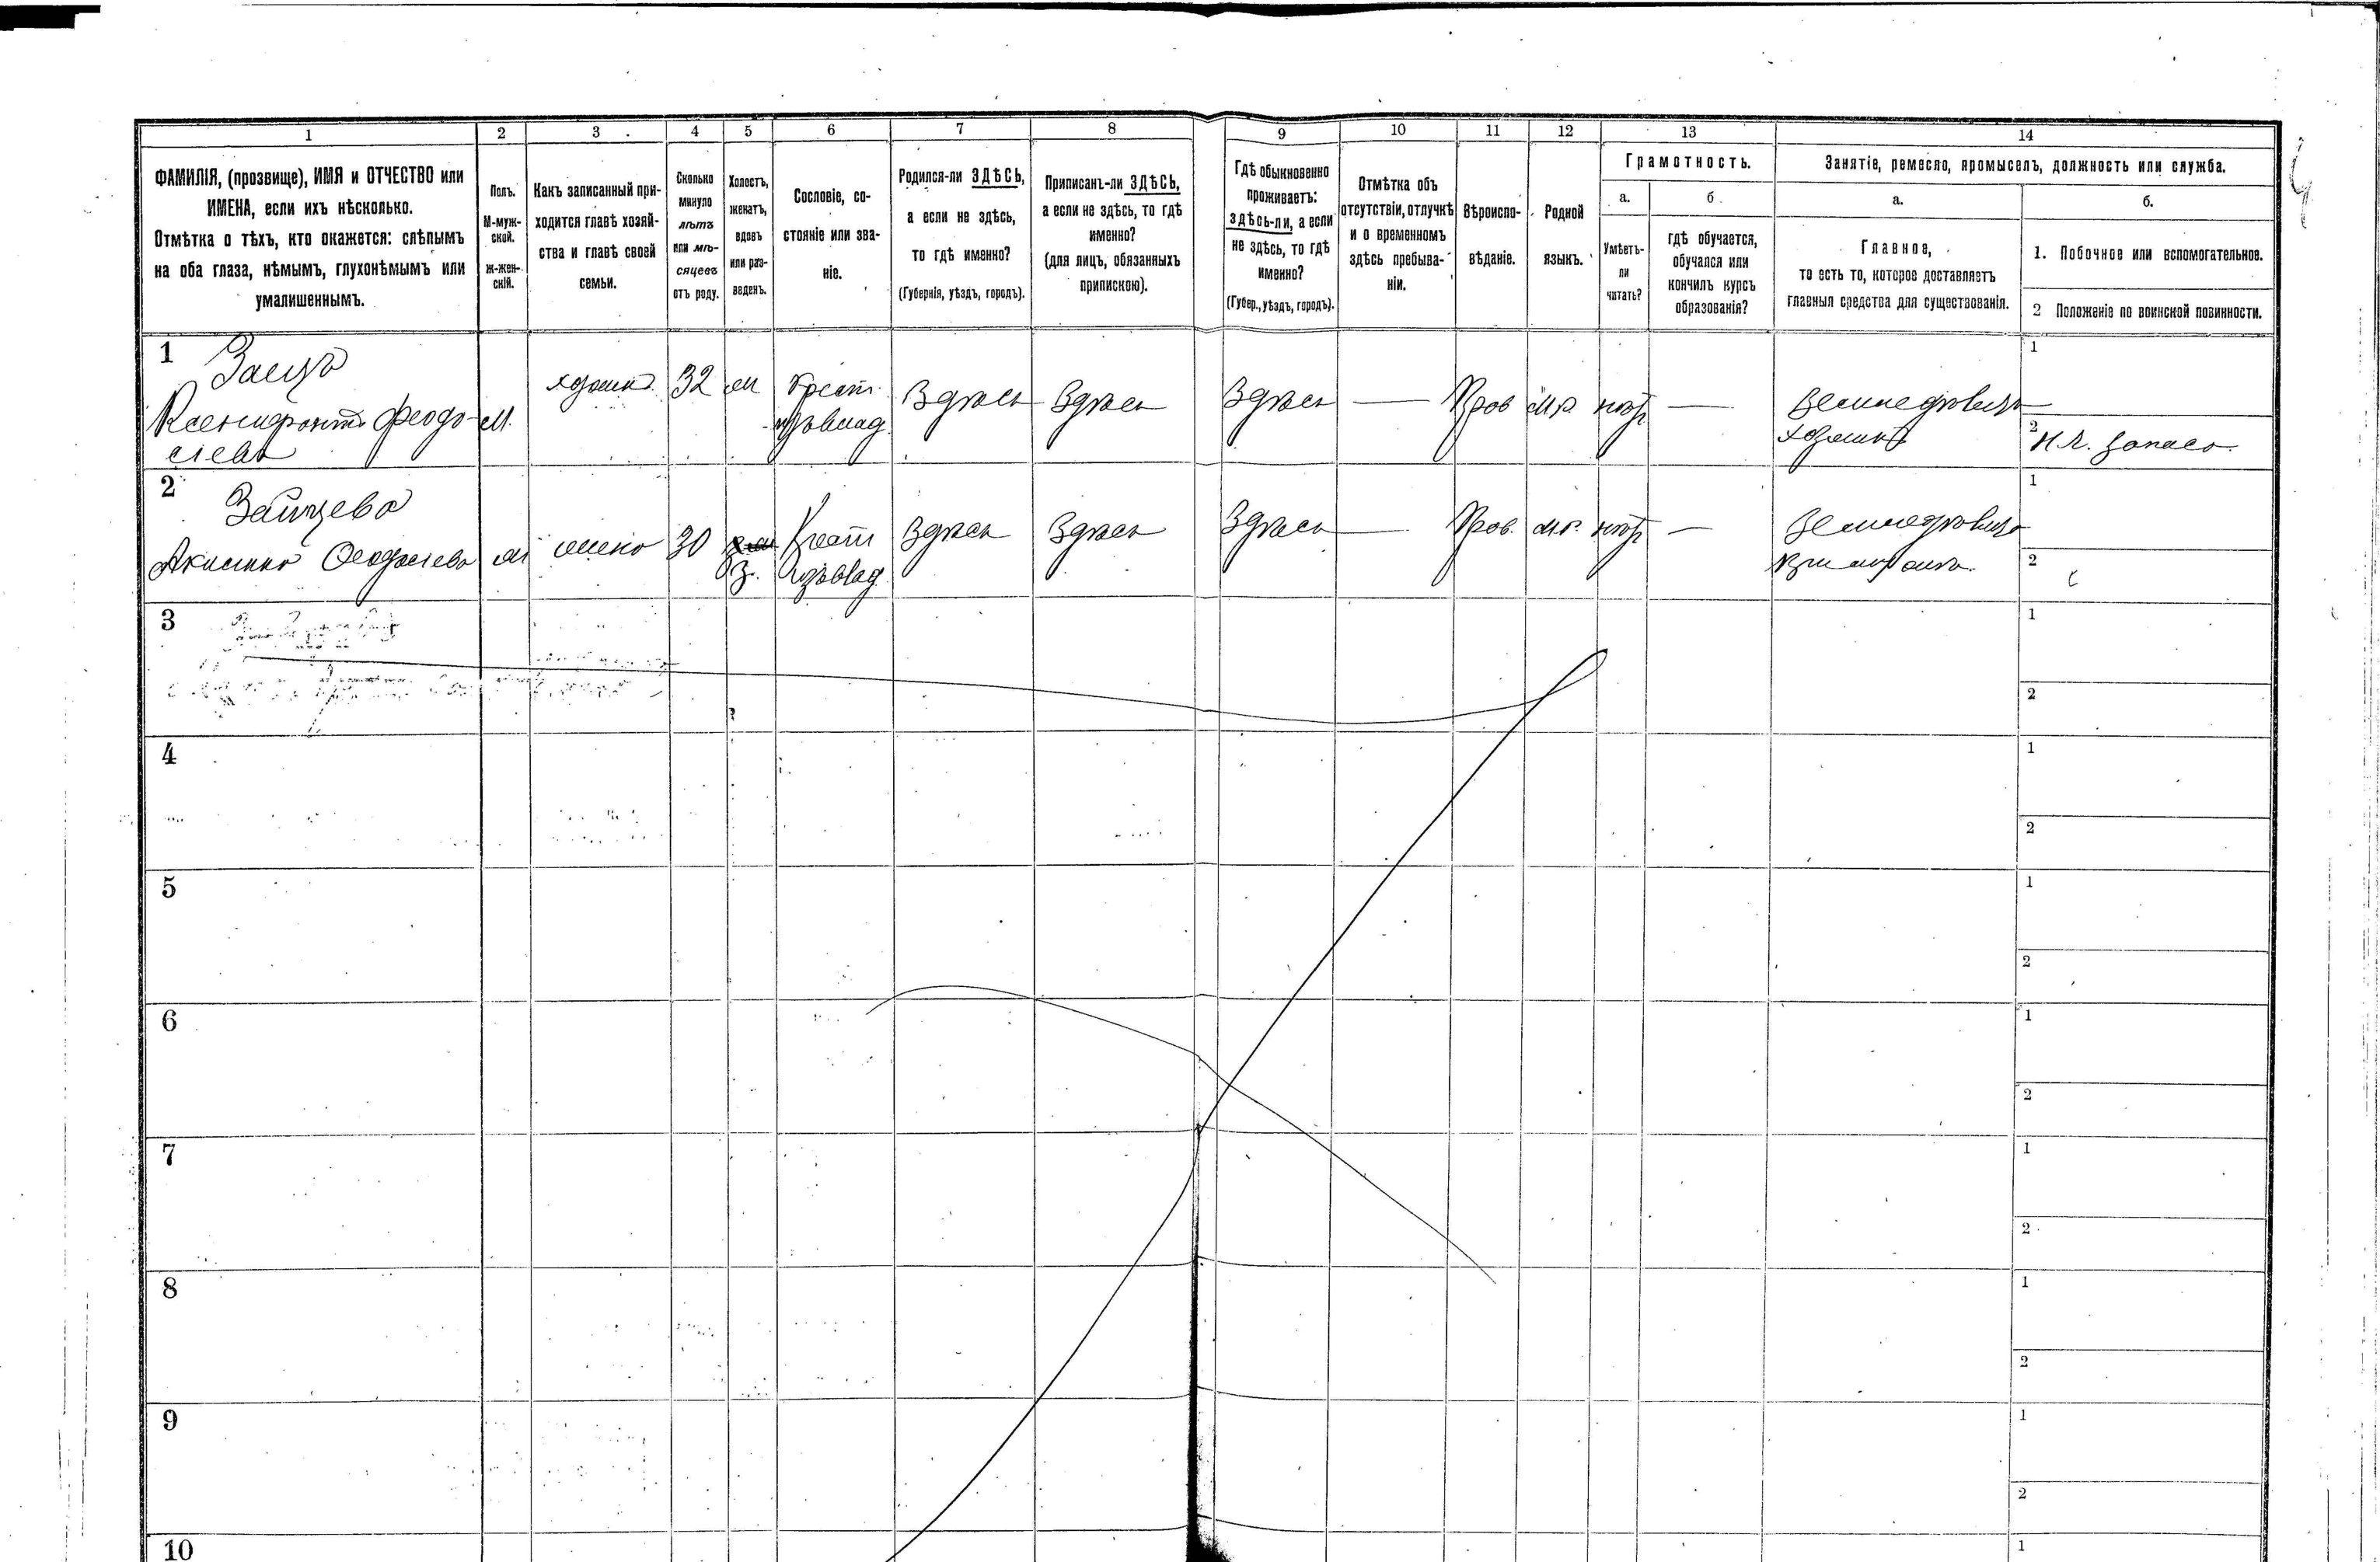 1 2 3 4 5 6 7 8 9 10 11 12 13 14
ФАМИЛІЯ, (прозвище), ИМЯ и ОТЧЕСТВО или
ИМЕНА, если ихъ нѣсколько.
Отмѣтка о тѣхъ, кто окажется: слѣпымъ
на оба глаза, нѣмымъ, глухонѣмымъ или
умалишеннымъ.
Полъ.
М-муж-
ской.
ж-жен-
скій.
Какъ записанный при-
ходится главѣ хозяй-
ства и главѣ своей
семьи.
Сколько
минуло
лѣтъ
или мѣ-
сяцевъ
отъ роду.
Холостъ,
женатъ,
вдовъ
или раз-
веденъ.
Сословіе, со-
стояніе или зва-
ніе.
Родился-ли ЗДѢСЬ,
а если не здѣсь,
то гдѣ именно?
(Губернія, уѣздъ, городъ).
Приписанъ-ли ЗДѢСЬ,
а если не здѣсь, то гдѣ
именно?
(для лицъ, обязанныхъ
припискою).
Гдѣ обыкновенно
проживаетъ:
здѣсь-ли, а если
не здѣсь, то гдѣ
именно?
(Губер., уѣздъ, городъ).
Отмѣтка объ
отсутствіи, отлучкѣ
и о временномъ
здѣсь пребыва-
ніи.
Вѣроиспо-
вѣданіе.
Родной
языкъ.
Грамотность.
а.
Умѣетъ-
ли
читать?
б.
гдѣ обучается,
обучался или
кончилъ курсъ
образованія?
Занятіе, ремесло, промыселъ, должность или служба.
а.
Главное,
то есть то, которое доставляетъ
главныя средства для существованія.
б.
1. Побочное или вспомогательное.
2 Положеніе по воинской повинности.
1
Заецъ
Ксенофонтъ Феодо-
сіевъ
М.
хозяинъ
32
Крест.
Здѣсь
Здѣсь
Здѣсь
—
Прав
м.р.
нѣтъ
—
хозяинъ
1
2
2
Зайцева
Феодосіева
жена
30
З.
Крест
Здѣсь
Здѣсь
Здѣсь
—
Прав.
м.р.
нѣтъ
—
1
2
3
1
2
4
1
2
5
1
2
6
1
2
7
1
2
8
1
2
9
1
2
10
1